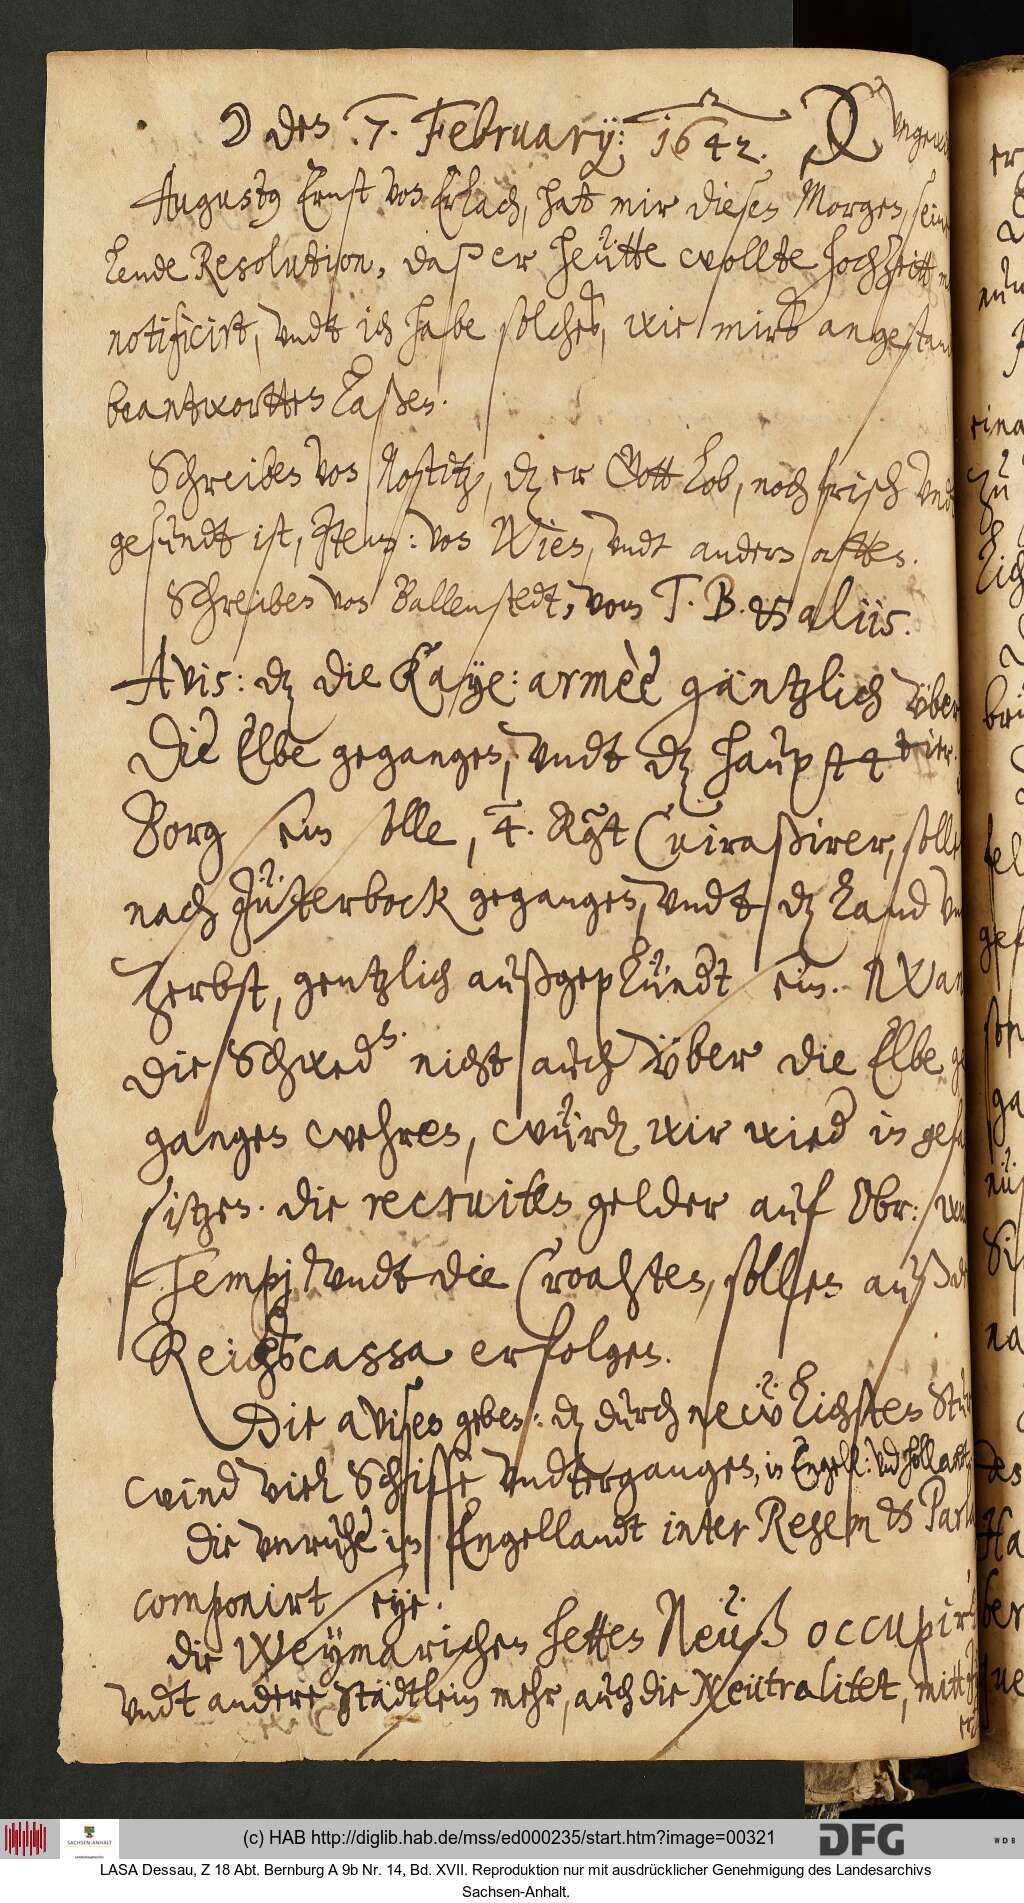 ☽ den .7. February: 1642.
Augustus Ernst von Erlach, hat mir diesen Morgen, seine
Lende Resolution, daß er heütte wollte hochzeitt
notificirt, undt ich habe solches, wie mirs angestanden
beantwortten laßen.
Schreiben von Nostitz, dz er Gott lob, noch frisch undt
gesundt ist, Item: von Wien, undt andern orthen.
Schreiben von Ballenstedt, vom T. B. et aliis.
Avis: dz die Kaye: armèè gäntzlich über
Die Elbe gegangen, undt dz haupt 4tier
Borg sein solle, 4. Rgt Cuiraßirer, sollen
nach Jüterbock gegangen, undt dz Land
Zerbst, gentzlich außgeplündt sein. Wan
die Schweden nicht auch über die Elbe ge
gangen wehren, würden wir wieder in gefahr
sitzen. die recruiten gelder auf Obr:
undt die Croahten, sollen auß der
Reichscassa erfolgen.
Die avisen geben: dz durch newlichsten Sturm
wind viel Schiffe undtergangen, in Engell: und hollandt,
die unruhe in Engellandt inter Regem et Parl
componirt seye.
die Weymarischen hetten Neüß occupirt
undt andere städtlein mehr, auch die Neutralitet, mitt